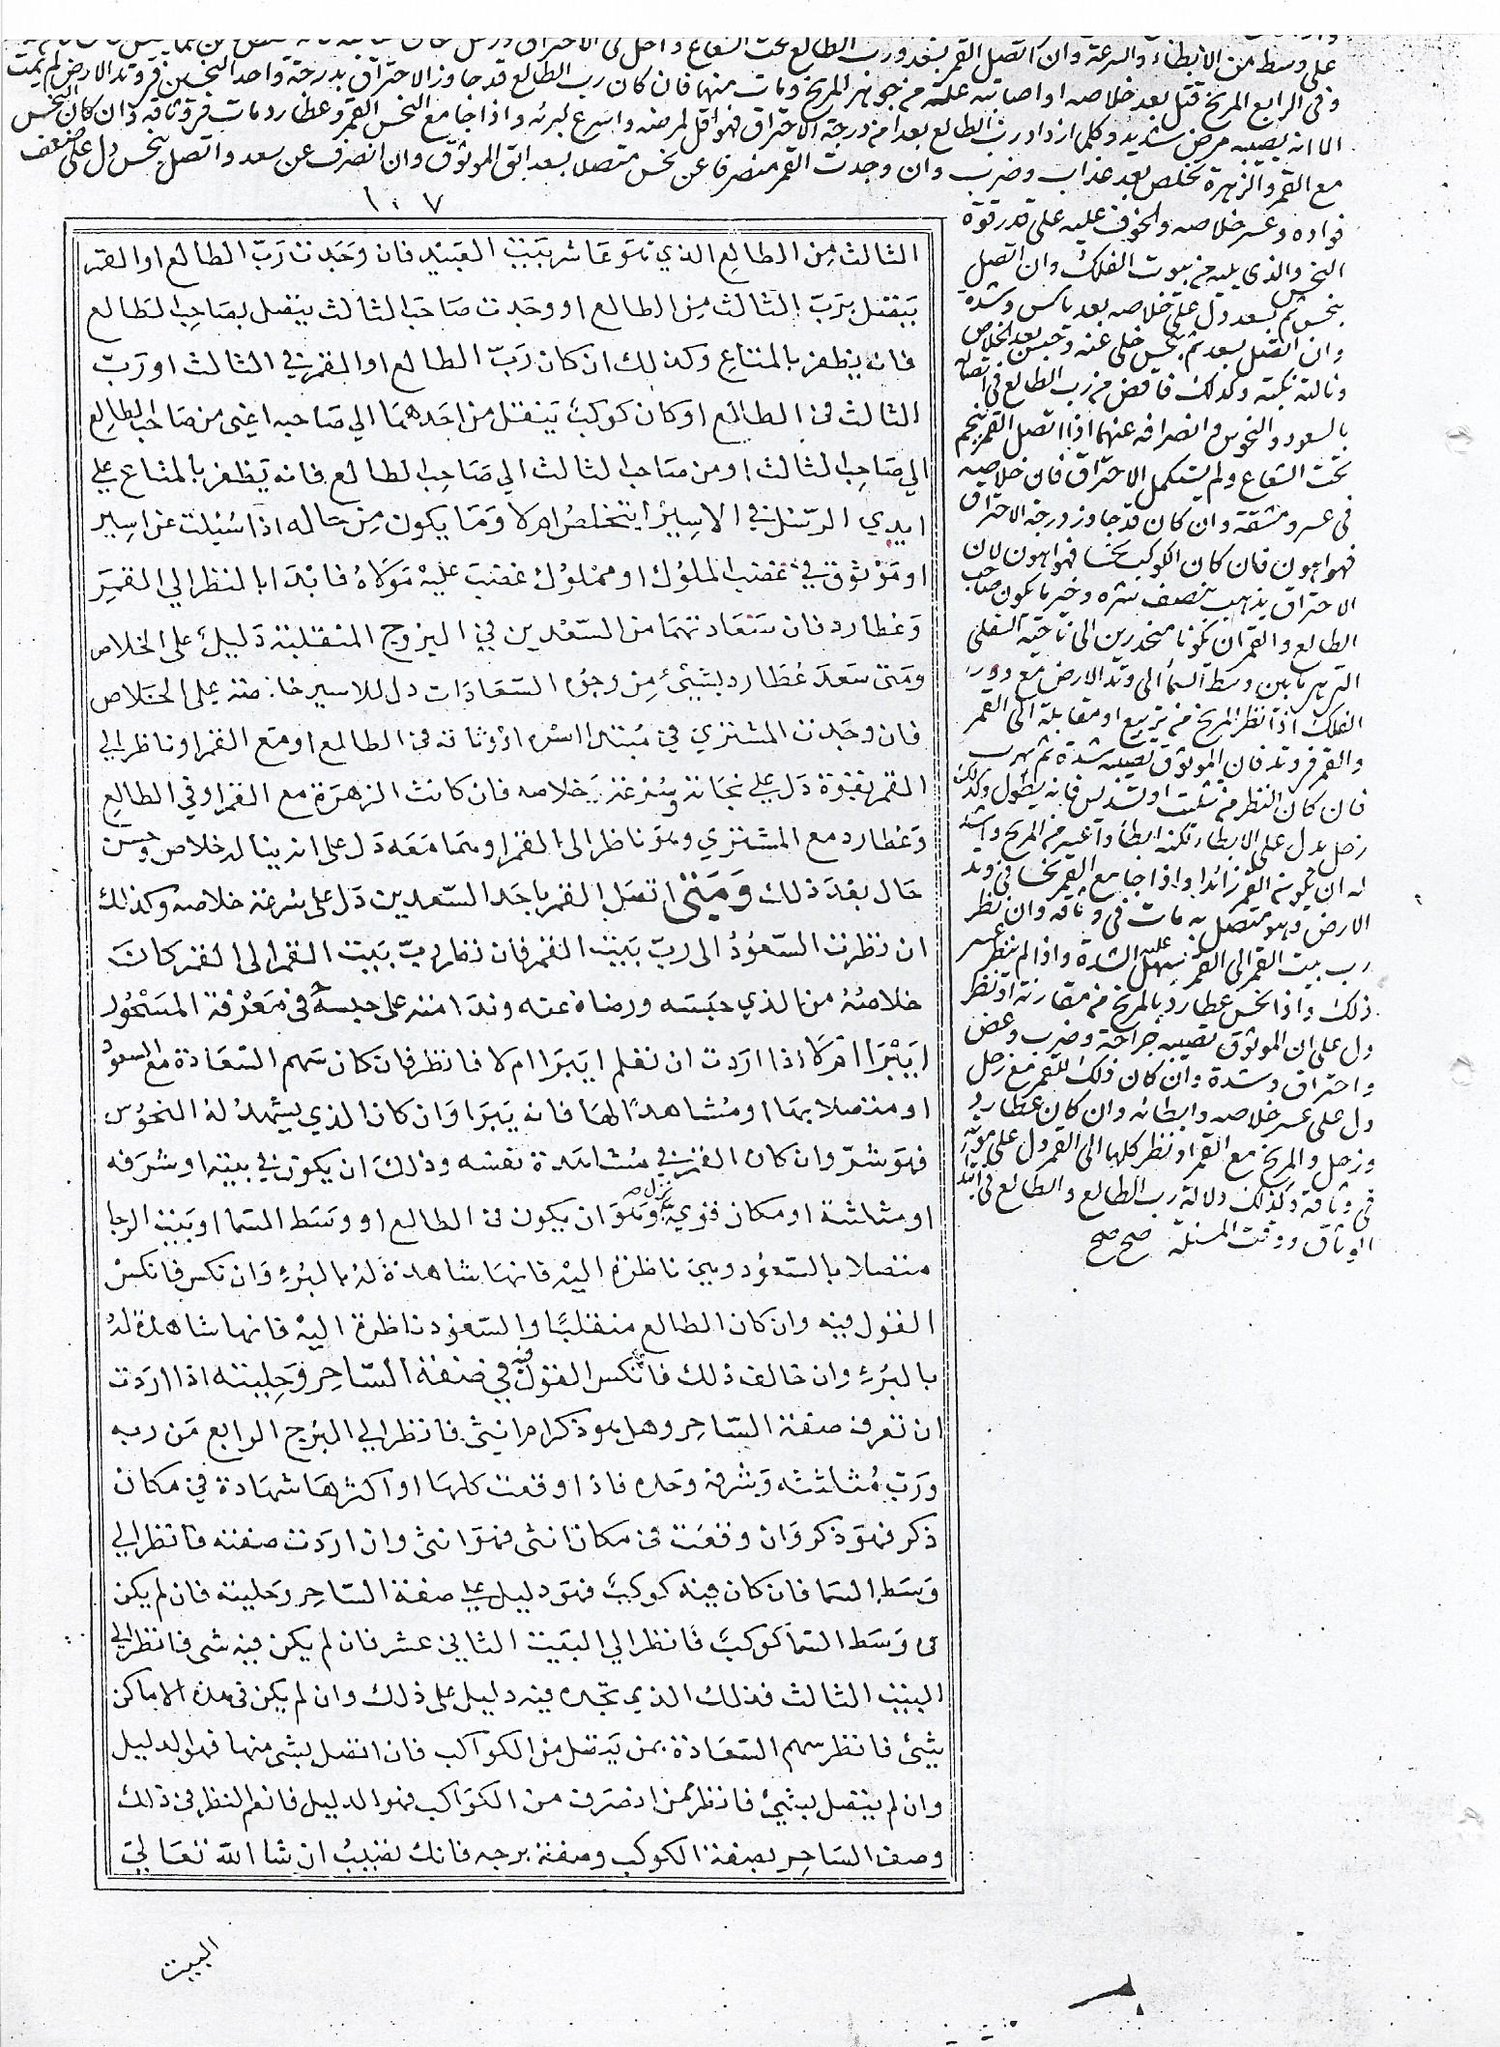 على وسط من الابطاء والسرعة وان اتصل القمر بعد ورب الطالع تحت الشعاع
وفى الرابع المريخ قتل بعد خلاصه او اصابته علة من جوهر المريخ ومات منها فان كان رب الطالع قد جاوز الاحتراق بدرجة واحد النحسين فى وتد الارض لم يمت
الا انه يصيبه مرض شديد وكلما ازداد رب الطالع بعدا من درجة الاحتراق فهو اقل لمرضه واسرع لبرئه واذا جامع النحس القمر وعطارد مات فى وثاقه وان كان النحس
مع القمر والزهرة تخلص بعد عذاب وضرب وان وجدت القمر منصرفا عن نحس متصلا بسعد ابق الموثوق وان انصرف عن سعد واتصل بنحس دل على ضعف
فواده وعسر خلاصه والخوف عليه على قدر قوة
النحس والذي يليه من بيوت الفلك وان اتصل
بنحس ثم بسعد دل على خلاصه بعد ياس وشدة
وان اتصل بسعد ثم بنحس خلى عنه وحبس بعد الخلاص
ونالته نكبة وكذلك فاقض من رب الطالع فى اتصاله
بالسعود والنحوس وانصرافه عنهما اذا اتصل القمر بنجم
تحت الشعاع ولم يستكمل الاحتراق فان خلاصه
فى عسر ومشقة وان كان قد جاوز درجة الاحتراق
فهو اهون فان كان الكوكب نحسا فهو اهون لان
الاحتراق يذهب بنصف شره وخير ما يكون صاحب
الطالع والقمر ان يكونا منحدرين الى ناحية السفلى
التى هى ما بين وسط السما الى وتد الارض مع دور
الفلك اذا نظر المريخ من تربيع او مقابلة الى القمر
والقمر فى وتد فان الموثوق تصيبه شدة ثم يهرب
فان كان النظر من تثليث او تسديس فانه يطول وكذلك
زحل يدل على الابطاء لكنه ابطا واعسر من المريخ واشد
له ان يكون القمر زائدا واذا جامع القمر نحسا فى وتد
الارض وهو متصل به مات فى وثاقه وان نظر
رب بيت القمر الى القمر سهل عليه الشدة واذا لم ينظر عسر
ذلك واذا نحس عطارد بالمريخ من مقارنة او نظر
دل على ان الموثوق تصيبه جراحة وضرب وعض
واحتراق وشدة وان كان ذلك للقمر مع زحل
دل على عسر خلاصه وابطائه وان كان عطارد
وزحل والمريخ مع القمر او نظر كلها الى القمر دل على موته
فى وثاقه وكذلك دلالة رب الطالع والطالع فى ابتداء
الوثاق ووقت المسئلة صح صح
١٠٧
الثالث من الطالع الذي هو عاشر بيت العبيد فان وجدت رب الطالع او القمر
يتصل برب الثالث من الطالع او وجدت صاحب الثالث يتصل بصاحب الطالع
فانه يظفر بالمتاع وكذلك ان كان رب الطالع او القمر في الثالث او رب
الثالث في الطالع او كان كوكب ينقل من احدهما الي صاحبه اعني من صاحب الطالع
الي صاحب الثالث او من صاحب الثالث الي صاحب الطالع فانه يظفر بالمتاع علي
ايدي الرسل في الاسير ايتخلص ام لا وما يكون من حاله اذا سئلت عن اسير
او موثوق في غضب الملوك او مملوك غضب عليه مولاه فابدا بالنظر الي القمر
وعطارد فان سعادتهما من السعدين في البروج المنقلبة دليل على الخلاص
ومتى سعد عطارد بشيء من وجوه السعادات دل للاسير خاصة على الخلاص
فان وجدت المشتري في مبتدا اسره او وثاقه في الطالع او مع القمر او ناظر الي
القمر بقوة دل علي نجاته وسرعة خلاصه فان كانت الزهرة مع القمر او في الطالع
وعطارد مع المشتري وهو ناظر الى القمر او هما معه دل على انه يناله خلاص وحسن
حال بعد ذلك ومتى اتصل القمر باحد السعدين دل على سرعة خلاصه وكذلك
ان نظرت السعود الى رب بيت القمر فان نظر رب بيت القمر الى القمر كان
خلاصه من الذي حبسه ورضاه عنه وندامته على حبسه في معرفة المسحور
ايبرا ام لا اذا اردت ان تعلم ايبرا ام لا فانظر فان كان سهم السعادة مع السعود
او متصلا بها او مشاهدا لها فانه يبرا وان كان الذي يشهد له النحوس
فهو شر وان كان القمر في مشاهدة نفسه وذلك ان يكون في بيته او شرفه
او مثلثة او مكان قوي ينزل فيه وهو ان يكون في الطالع او وسط السما او بيت الرجا
متصلا بالسعود وهي ناظرة اليه فانها شاهدة له بالبرء وان نكس فانكس
القول فيه وان كان الطالع منقلبا والسعود ناظرة اليه فانها شاهدة له
بالبرء وان خالف ذلك فانكس القول فيه في صفة الساحر وحليته اذا اردت
ان تعرف صفة الساحر وهل هو ذكر ام انثى فانظر الي البرج الرابع من ربه
ورب مثلثته وشرفه وحده فاذا وقعت كلها او اكثرها شهادة في مكان
ذكر فهو ذكر وان وقعت في مكان انثى فهو انثى وان اردت صفته فانظر الي
وسط السما فان كان فيه كوكب فهو دليل على صفة الساحر وحليته فان لم يكن
في وسط السما كوكب فانظر الي البيت الثاني عشر فان لم يكن فيه شى فانظر الي
البيت الثالث فذلك الذي تجده فيه دليل على ذلك وان لم يكن في هذه الاماكن
شيء فانظر سهم السعادة بمن يتصل من الكواكب فان اتصل بشى منها فهو الدليل
وان لم يتصل بشيء فانظر عمن انصرف من الكواكب فهو الدليل فانعم النظر في ذلك
وصف الساحر بصفة الكوكب وصفة برجه فانك تصيب ان شا الله تعالي
البيت